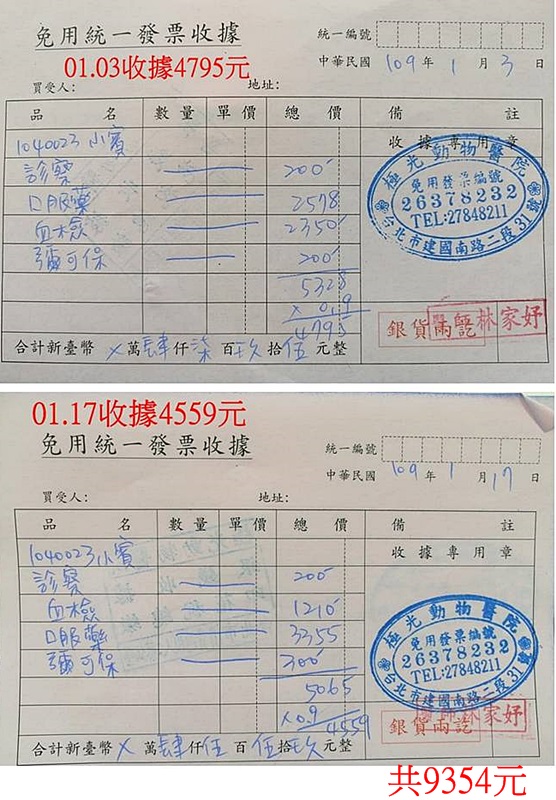 免用統一發票收據
統一編號
01.03收據4795元
中華民國 109 年 1 月 3 日
買受人: 地址:
品 名 數量 單價 總價 備 註
1040023 小賓 收據專用章
診察 200
口服藥 2578
血檢 2350
彌可保 200
5328
x 0.9
4795
極光動物醫院
免用發票編號
26378232
TEL:27848211
台北市建國南路二段31號
銀貨兩訖 林家妤
合計新臺幣 x 萬 肆 仟 柒 百 玖 拾 伍 元整
01.17收據4559元
免用統一發票收據
統一編號
中華民國 109 年 1 月 17 日
買受人: 地址:
品 名 數量 單價 總價 備 註
1040023 小賓 收據專用章
診察 200
血檢 1210
口服藥 3355
彌可保 300
5065
x0.9
4559
極光動物醫院
免用發票編號
26378232
TEL:27848211
台北市建國南路二段31號
銀貨兩訖 林家妤
合計新臺幣 x 萬 肆 仟 伍 百 伍 拾 玖 元整
共9354元